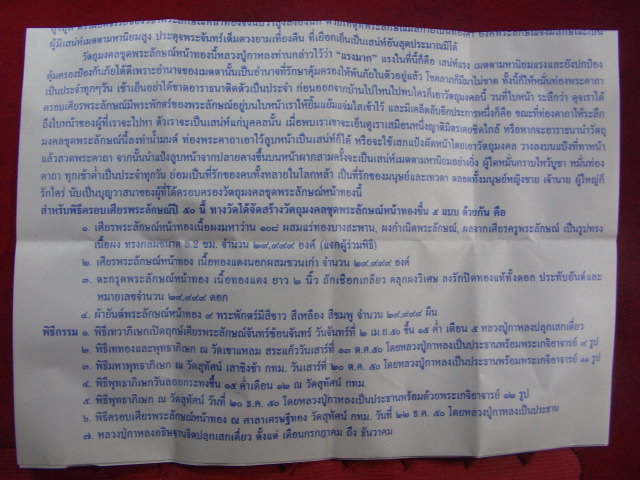 ผู้มีเสน่ห์เมตตามหานิยมสูง ประดุจพระจันทร์เต็มดวงยามเที่ยงคืน ที่เยือกเย็นเป็นเสน่ห์อันสุดประมาณมิได้
วัตถุมงคลชุดพระลักษณ์หน้าทองนี้หลวงปู่กาหลงท่านกล่าวไว้ว่า "แรงมาก" แรงในที่นี้ก็คือ เสน่ห์แรง เมตตามหานิยมแรงและยังปกป้อง
คุ้มครองป้องกันภัยได้ดีเพราะอำนาจของเมตตานั้นเป็นอำนาจที่รักษาคุ้มครองให้พ้นภัยในตัวอยู่แล้ว โชคลาภก็มีมาไม่ขาด ทั้งนี้ก็ให้หมั่นท่องพระคาถา
เป็นประจำทุกๆวัน เช้าเย็นอย่าได้ขาดอาราธนาติดตัวเป็นประจำ ก่อนออกจากบ้านไปไหนไปพบใครก็เอาวัตถุมงคลนี้ วนที่ใบหน้า ระลึกว่า ดุจเราได้
ครอบเศียรพระลักษณ์มีพระพักตร์ของพระลักษณ์อยู่บนใบหน้าเราให้ยิ้มแย้มแจ่มใสเข้าไว้ และมีเคล็ดลับอีกประการหนึ่งก็คือ ขณะที่ท่องคาถาให้ระลึก
ถึงใบหน้าของผู้ที่เราจะไปหา ตัวเราจะเป็นเสน่ห์แก่บุคคลนั้น เมื่อพบเราเขาจะเอ็นดูเราเสมือนหนึ่งญาติมิตรเคยชิดใกล้ หรือหากจะอาราธนานำวัตถุ
มงคลชุดพระลักษณ์นี้ลงทำน้ำมนต์ ท่องพระคาถาเอาไว้ลูบหน้าเป็นเสน่ห์ก็ได้ หรือจะใช้เสกแป้งผัดหน้าโดยเอาวัตถุมงคล วางลงบนแป้งที่ทาหน้า
แล้วสวดพระคาถา จากนั้นนำแป้งลูบหน้าจากปลายคางขึ้นบนหน้าผากสามครั้งจะเป็นเสน่ห์เมตตามหานิยมอย่างยิ่ง ผู้ใดหมั่นกราบไหว้บูชา หมั่นท่อง
คาถา ทุกเช้าค่ำเป็นประจำทุกวัน ย่อมเป็นที่รักของคนทั้งหลายในโลกหล้า เป็นที่รักของมนุษย์และเทวดา ตลอดทั้งมนุษย์หญิงชาย เจ้านาย ผู้ใหญ่ก็
รักใคร่ นับเป็นบุญวาสนาของผู้ที่ได้ครอบครองวัตถุมงคลชุดพระลักษณ์หน้าทองนี้
สำหรับพิธีครอบเศียรพระลักษณ์ปี ๕๐ นี้ ทางวัดได้จัดสร้างวัตถุมงคลชุดพระลักษณ์หน้าทองขึ้น ๕ แบบ ด้วยกัน คือ
๑. เศียรพระลักษณ์หน้าทองเนื้อผงมหาว่าน ๑๐๘ ผสมแร่ทองบางสะพาน, ผงกำเนิดพระลักษณ์, ผลจากเศียรครูพระลักษณ์ เป็นรูปทรง
เนื้อผง ทรงกลมขนาด 5.2 ซม. จำนวน ๒๙,๙๙๙ องค์ (แจกผู้ร่วมพิธี)
๒. เศียรพระลักษณ์หน้าทอง เนื้อทองแดงนอกผสมชวนเก่า จำนวน ๙๙๙๙ องค์
๓. ตะกรุดพระลักษณ์หน้าทอง เนื้อทองแดง ยาว ๒ นิ้ว ถักเชือกเกลียว คลุกผงวิเศษ ลงรักปิดทองแท้ทั้งดอก ประทับยันต์และ
หมายเลขจำนวน ๒๙,๙๙๙ ดอก
๔. ผ้ายันต์พระลักษณ์หน้าทอง ๙ พระพักตร์มีสีขาว สีเหลือง สีชมพู จำนวน ๒๙,๙๙๙ ผืน
พิธีกรรม ๑. พิธีเทวาภิเษกเปิดฤกษ์เศียรพระลักษณ์จันทร์ซ้อนจันทร์ วันจันทร์ที่ ๒ เม.ย.๕๐ ขึ้น ๑๕ ค่ำ เดือน ๕ หลวงปู่กาหลงปลุกเสกเดี่ยว
๒. พิธีเททองและพุทธาภิเษก ณ วัดเขาแหลม สระแก้ววันเสาร์ที่ ๑๓ ต.ค.๕๐ โดยหลวงปู่กาหลงเป็นประธานพร้อมพระเกจิอาจารย์ ๙ รูป
๓. พิธีมหาพุทธาภิเษก ณ วัดสุทัศน์ เสาชิงช้า กทม. วันเสาร์ที่ ๒๐ ต.ค. ๕๐ โดยหลวงปู่กาหลงเป็นประธานพร้อมพระเกจิอาจารย์ ๑๑ รูป
๔. พิธีพุทธาภิเษกวันลอยกระทงขึ้น ๑๕ ค่ำเดือน ๑๒ ณ วัดสุทัศน์ กทม.
๕. พิธีพุทธาภิเษก ณ วัดสุทัศน์ วันที่ ๒๐ ธ.ค. ๕๐ โดยหลวงปู่กาหลงเป็นประธานพร้อมด้วยพระเกจิอาจารย์ ๑๒ รูป
๖. พิธีครอบเศียรพระลักษณ์หน้าทอง ณ ศาลาเศรษฐีทอง วัดสุทัศน์ กทม. วันที่ ๒๒ ธ.ค. ๕๐ โดยหลวงปู่กาหลงเป็นประธาน
๗. หลวงปู่กาหลงอธิษฐานจิตปลุกเสกเดี่ยว ตั้งแต่ เดือนกรกฎาคม ถึง ธันวาคม